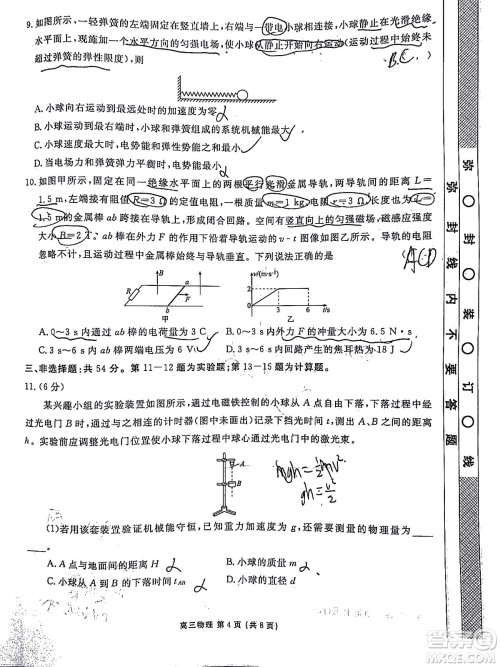 9.如图所示，一轻弹簧的左端固定在竖直墙上，右端与一带电小球相连接，小球静止在光滑绝缘
水平面上，现施加一个水平方向的匀强电场，使小球从静止开始向右运动（运动过程中始终未
超过弹簧的弹性限度），则
B.C.
A.小球向右运动到最远处时的加速度为零
B.运动到最右端时，小球和弹簧组成的系统机械能最大
C.运动到最右端时，电势能最小
D.电场力和弹簧弹力平衡时，电势能最小
10.如图甲所示，固定在同一绝缘水平面上的两根平行光滑金属导轨，两导轨间的距离L=
1.5m，左端接有阻值R=3Ω的电阻，一质量m=1kg、电阻r=3Ω、长度也为L=
1.5m的金属棒ab跨接在导轨上，空间有竖直向上的匀强磁场，磁感应强度
B=2T，ab棒在外力F的作用下沿着导轨运动的v-t图像如图乙所示。导轨的电阻
忽略不计，且运动过程中金属棒始终与导轨垂直。下列说法正确的是
ACD
B
a
R
F
b
甲
v/(m·s⁻¹)
0
3
6
t/s
乙
A.0~3s内通过ab棒的电荷量为3C
B.0~3s内外力F的冲量大小为6.5N·s
C.3s~6s内ab棒两端的电压为6V
D.3s~6s内电阻R产生的焦耳热为18J
三、非选择题：共54分。第11~12题为实验题；第13~15题为计算题。
11.(6分)
某兴趣小组的实验装置如图所示，通过电磁铁控制的小球从A点自由下落，下落过程中
经过光电门B时，通过与之相连的计时器（图中未画出）记录下挡光时间t，测出AB之间的距离
h。实验前应调整光电门位置使小球下落过程中球心通过光电门中的激光束。
A
B
mgh=½mv²
gh=v²/2
(1)若用该套装置验证机械能守恒，已知重力加速度为g，还需要测量的物理量为____
____。
A.A点与地面间的距离
B.小球的质量
C.小球从A到B的下落时间tAB
D.小球的直径d
高三物理 第4页（共6页）
弥
封
线
内
不
要
答
题
弥
封
装
订
线